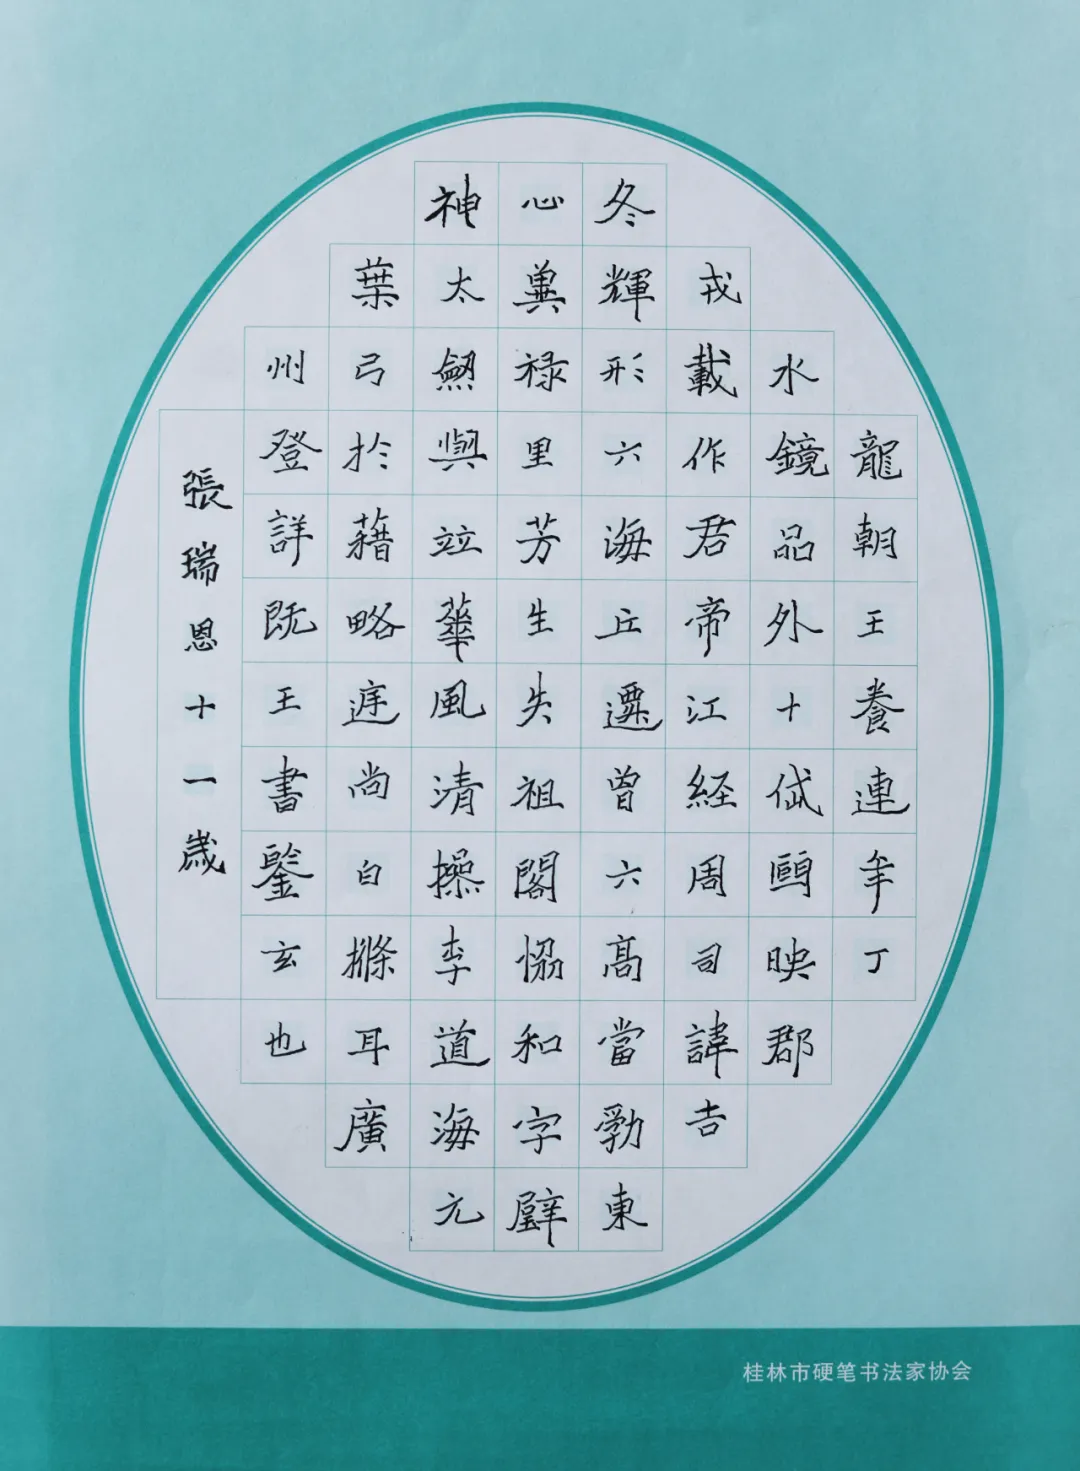 龍朝王養連年丁
水鏡品外十映郡
戎載作君帝江経周司諱吉
冬輝形六海丘遷曾六高當勃東
心冀禄里芳生失祖閣恊和字璧
神太劔與竝華風清操李道海元
葉弓於藉略尚白耳廣
州登詳既王書鑒玄也
張瑞恩十一歲
桂林市硬笔书法家协会